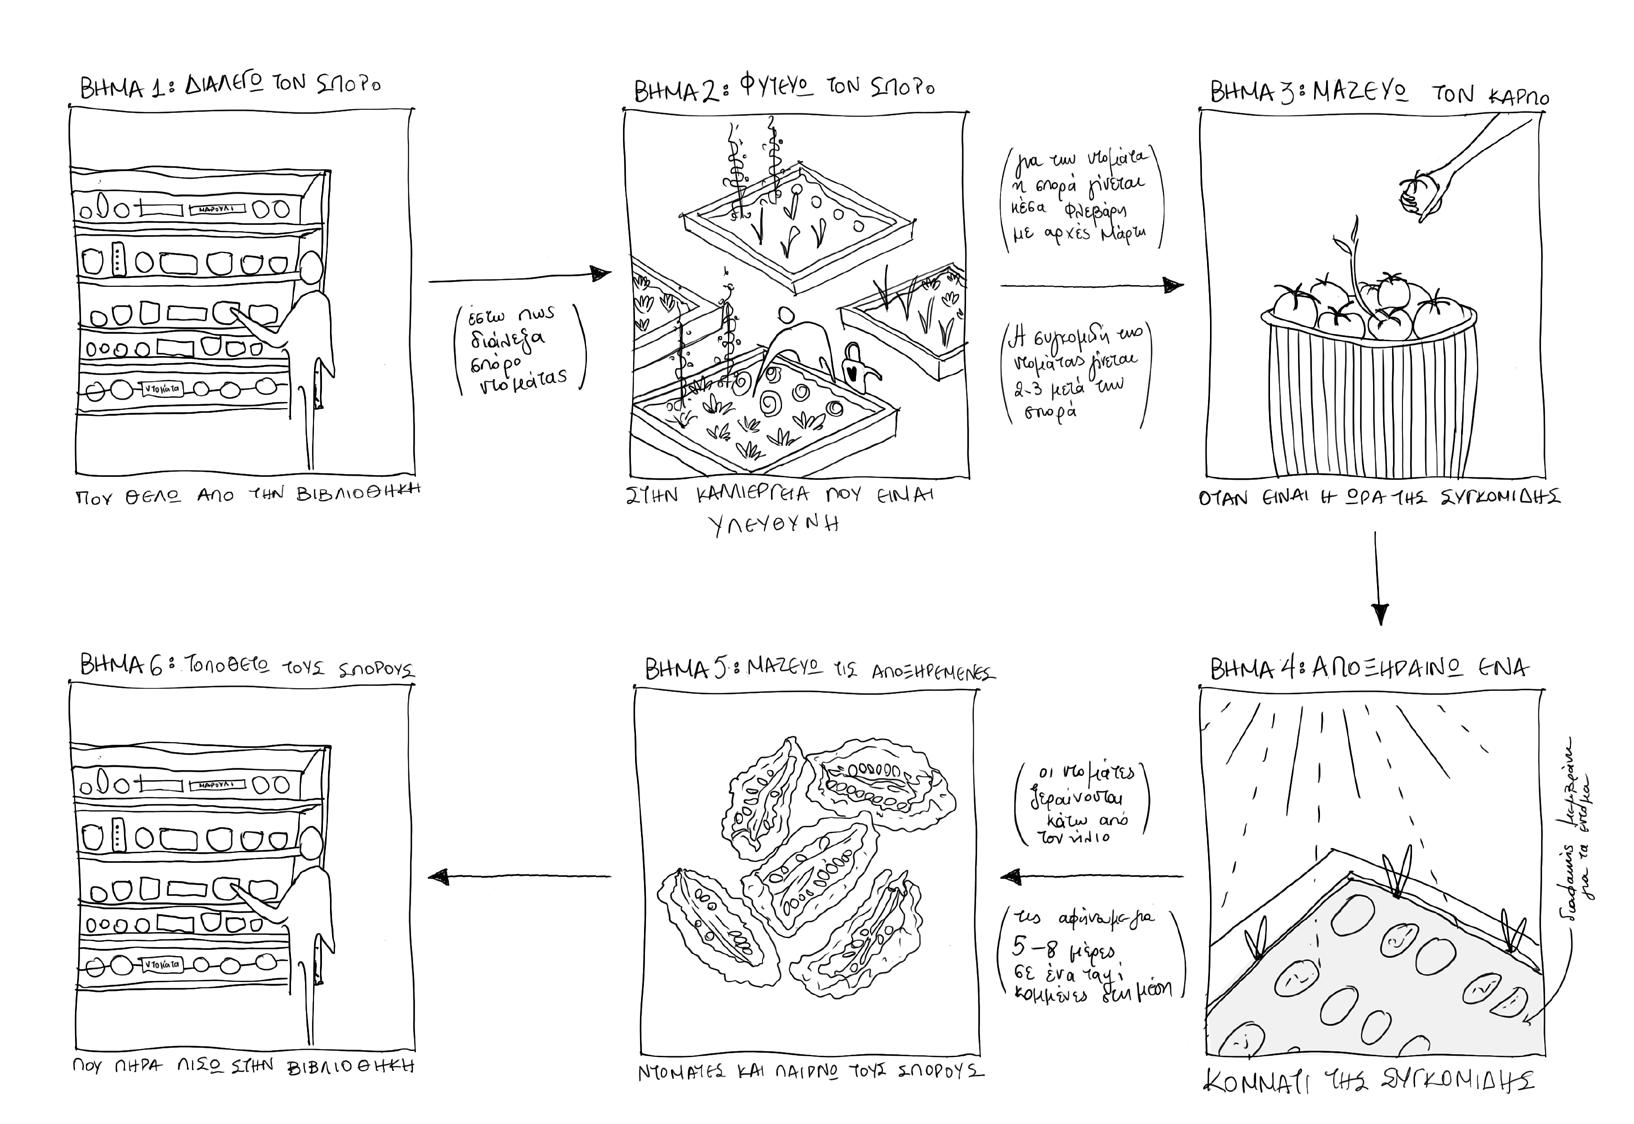 ΒΗΜΑ 1: ΔΙΑΛΕΓΩ ΤΟΝ ΣΠΟΡΟ
ΜΑΡΟΥΛΙ
ντομάτα
ΠΟΥ ΘΕΛΩ ΑΠΟ ΤΗΝ ΒΙΒΛΙΟΘΗΚΗ
(έστω πως
διάλεξα
σπόρο
ντομάτας)
ΒΗΜΑ 2: ΦΥΤΕΥΩ ΤΟΝ ΣΠΟΡΟ
ΣΤΗΝ ΚΑΛΛΙΕΡΓΕΙΑ ΠΟΥ ΕΙΝΑΙ
ΥΠΕΥΘΥΝΗ
(για την ντομάτα
η σπορά γίνεται
μέσα Φλεβάρη
με αρχές Μάρτη)
(Η συγκομιδή της
ντομάτας γίνεται
2-3 μετά την
σπορά)
ΒΗΜΑ 3: ΜΑΖΕΥΩ ΤΟΝ ΚΑΡΠΟ
ΟΤΑΝ ΕΙΝΑΙ Η ΩΡΑ ΤΗΣ ΣΥΓΚΟΜΙΔΗΣ
ΒΗΜΑ 4: ΑΠΟΞΗΡΑΙΝΩ ΕΝΑ
διαφανής μεμβράνη
για τα έντομα
ΚΟΜΜΑΤΙ ΤΗΣ ΣΥΓΚΟΜΙΔΗΣ
(οι ντομάτες
ξεραίνονται
κάτω από
τον ήλιο)
(τις αφήνουμε για
5-8 μέρες
σε ένα ταψί
κομμένες στη μέση)
ΒΗΜΑ 5: ΜΑΖΕΥΩ ΤΙΣ ΑΠΟΞΗΡΕΜΕΝΕΣ
ΝΤΟΜΑΤΕΣ ΚΑΙ ΠΑΙΡΝΩ ΤΟΥΣ ΣΠΟΡΟΥΣ
ΒΗΜΑ 6: ΤΟΠΟΘΕΤΩ ΤΟΥΣ ΣΠΟΡΟΥΣ
ΜΑΡΟΥΛΙ
ντομάτα
ΠΟΥ ΠΗΡΑ ΠΙΣΩ ΣΤΗΝ ΒΙΒΛΙΟΘΗΚΗ